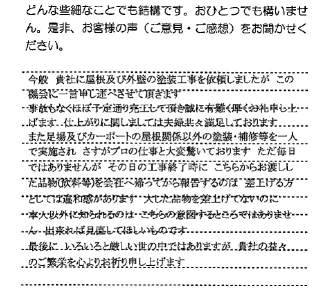 どんな些細なことでも結構です。おひとつでも構いませ
ん。是非、お客様の声（ご意見・ご感想）をお聞かせく
ださい。
今般 貴社に屋根及び外壁の塗装工事を依頼しましたが この
機会に一言申し述べさせて頂きます
事故もなくほぼ予定通り完工して頂き誠に有難く厚くお礼申し上
げます 仕上がりに関しましては夫婦共々満足しております
また足場及びカーポートの屋根関係以外の塗装・補修等を一人
で実施され さすがプロの仕事と大変驚いております ただ毎日
ではありませんが その日の工事終了時に こちらからお渡しし
た品物(飲料等)を会社へ帰ってから報告するのは 差上げる方
としては違和感があります 大した品物を差上げてないのに
本人以外に知られるのは こちらの意図するところではありませ
ん 出来れば見直してほしいものです
最後に いろいろと厳しい世の中ではありますが 貴社の益々
のご繁栄を心よりお祈り申し上げます